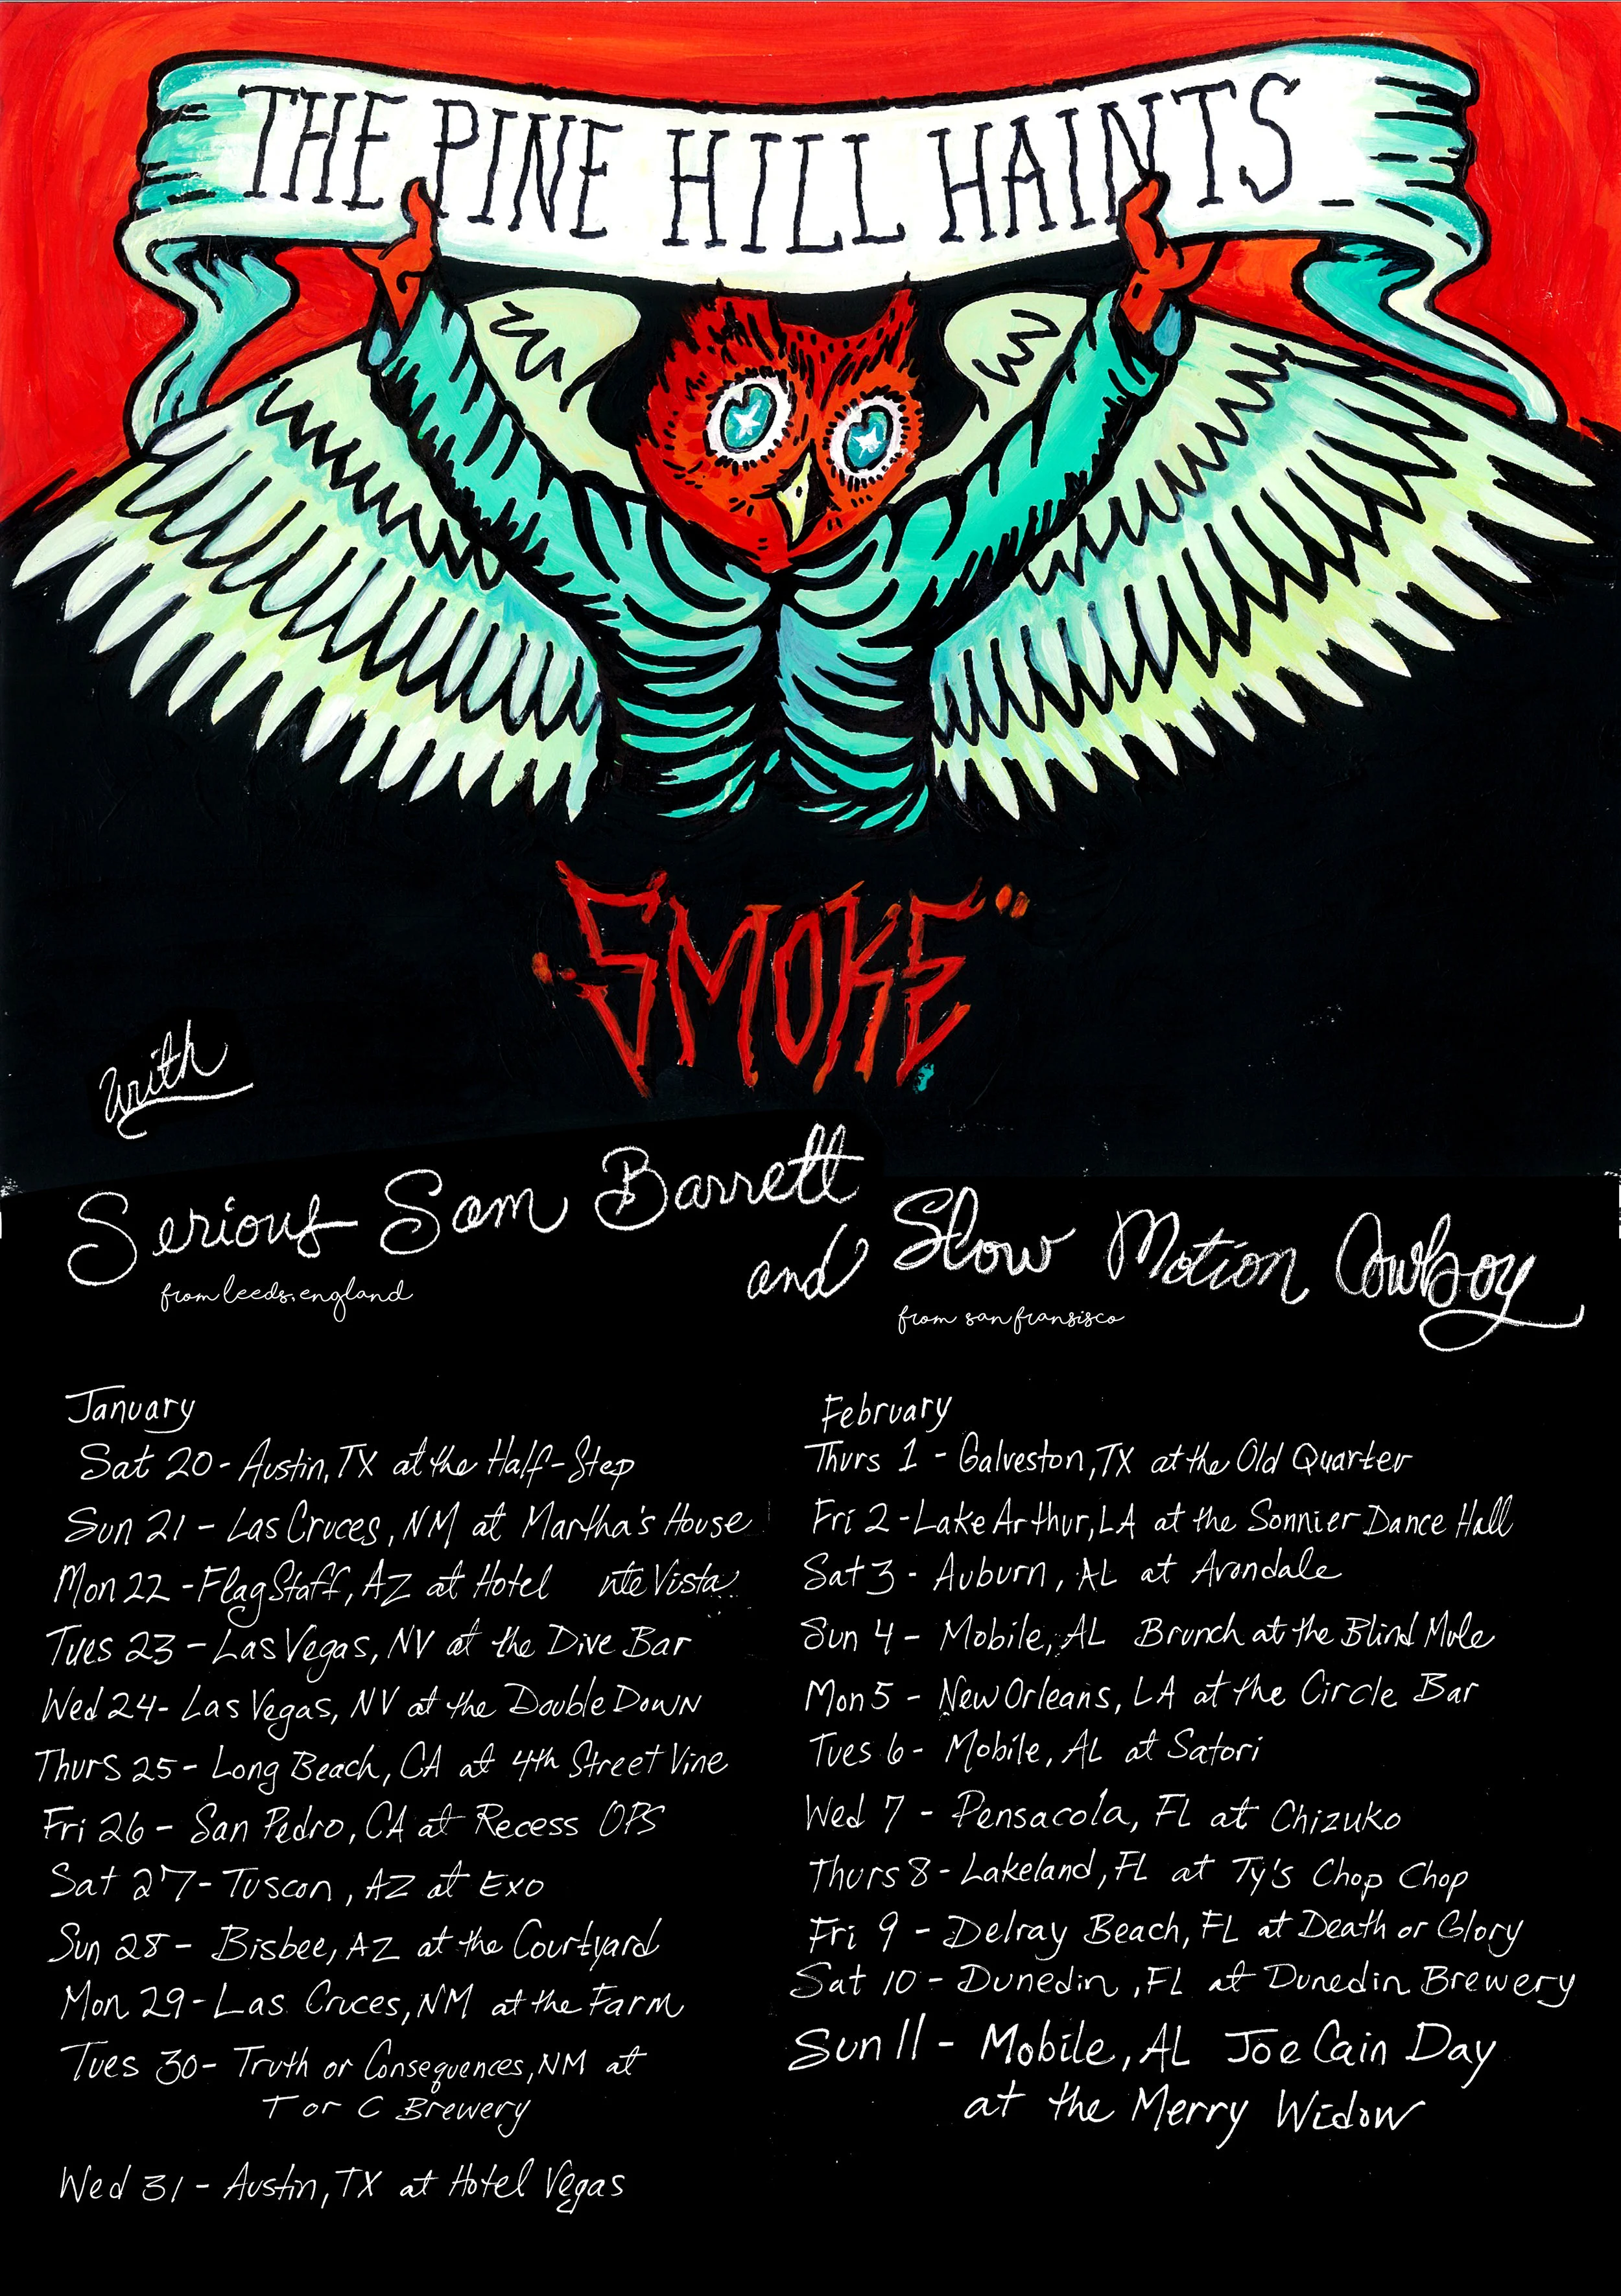 THE PINE HILL HAINTS
"SMOKE"
with
Serious Sam Barrett
from leeds, england
and Slow Motion Cowboy
from san fransisco
January
Sat 20 - Austin, TX at the Half-Step
Sun 21 - Las Cruces, NM at Martha's House
Mon 22 - FlagStaff, AZ at Hotel nte Vista
Tues 23 - Las Vegas, NV at the Dive Bar
Wed 24 - Las Vegas, NV at the Double Down
Thurs 25 - Long Beach, CA at 4th Street Vine
Fri 26 - San Pedro, CA at Recess OPS
Sat 27 - Tuscon, AZ at Exo
Sun 28 - Bisbee, AZ at the Courtyard
Mon 29 - Las Cruces, NM at the Farm
Tues 30 - Truth or Consequences, NM at
T or C Brewery
Wed 31 - Austin, TX at Hotel Vegas
February
Thurs 1 - Galveston, TX at the Old Quarter
Fri 2 - Lake Arthur, LA at the Sonnier Dance Hall
Sat 3 - Auburn, AL at Avondale
Sun 4 - Mobile, AL Brunch at the Blind Mule
Mon 5 - New Orleans, LA at the Circle Bar
Tues 6 - Mobile, AL at Satori
Wed 7 - Pensacola, FL at Chizuko
Thurs 8 - Lakeland, FL at Ty's Chop Chop
Fri 9 - Delray Beach, FL at Death or Glory
Sat 10 - Dunedin, FL at Dunedin Brewery
Sun 11 - Mobile, AL Joe Cain Day
at the Merry Widow